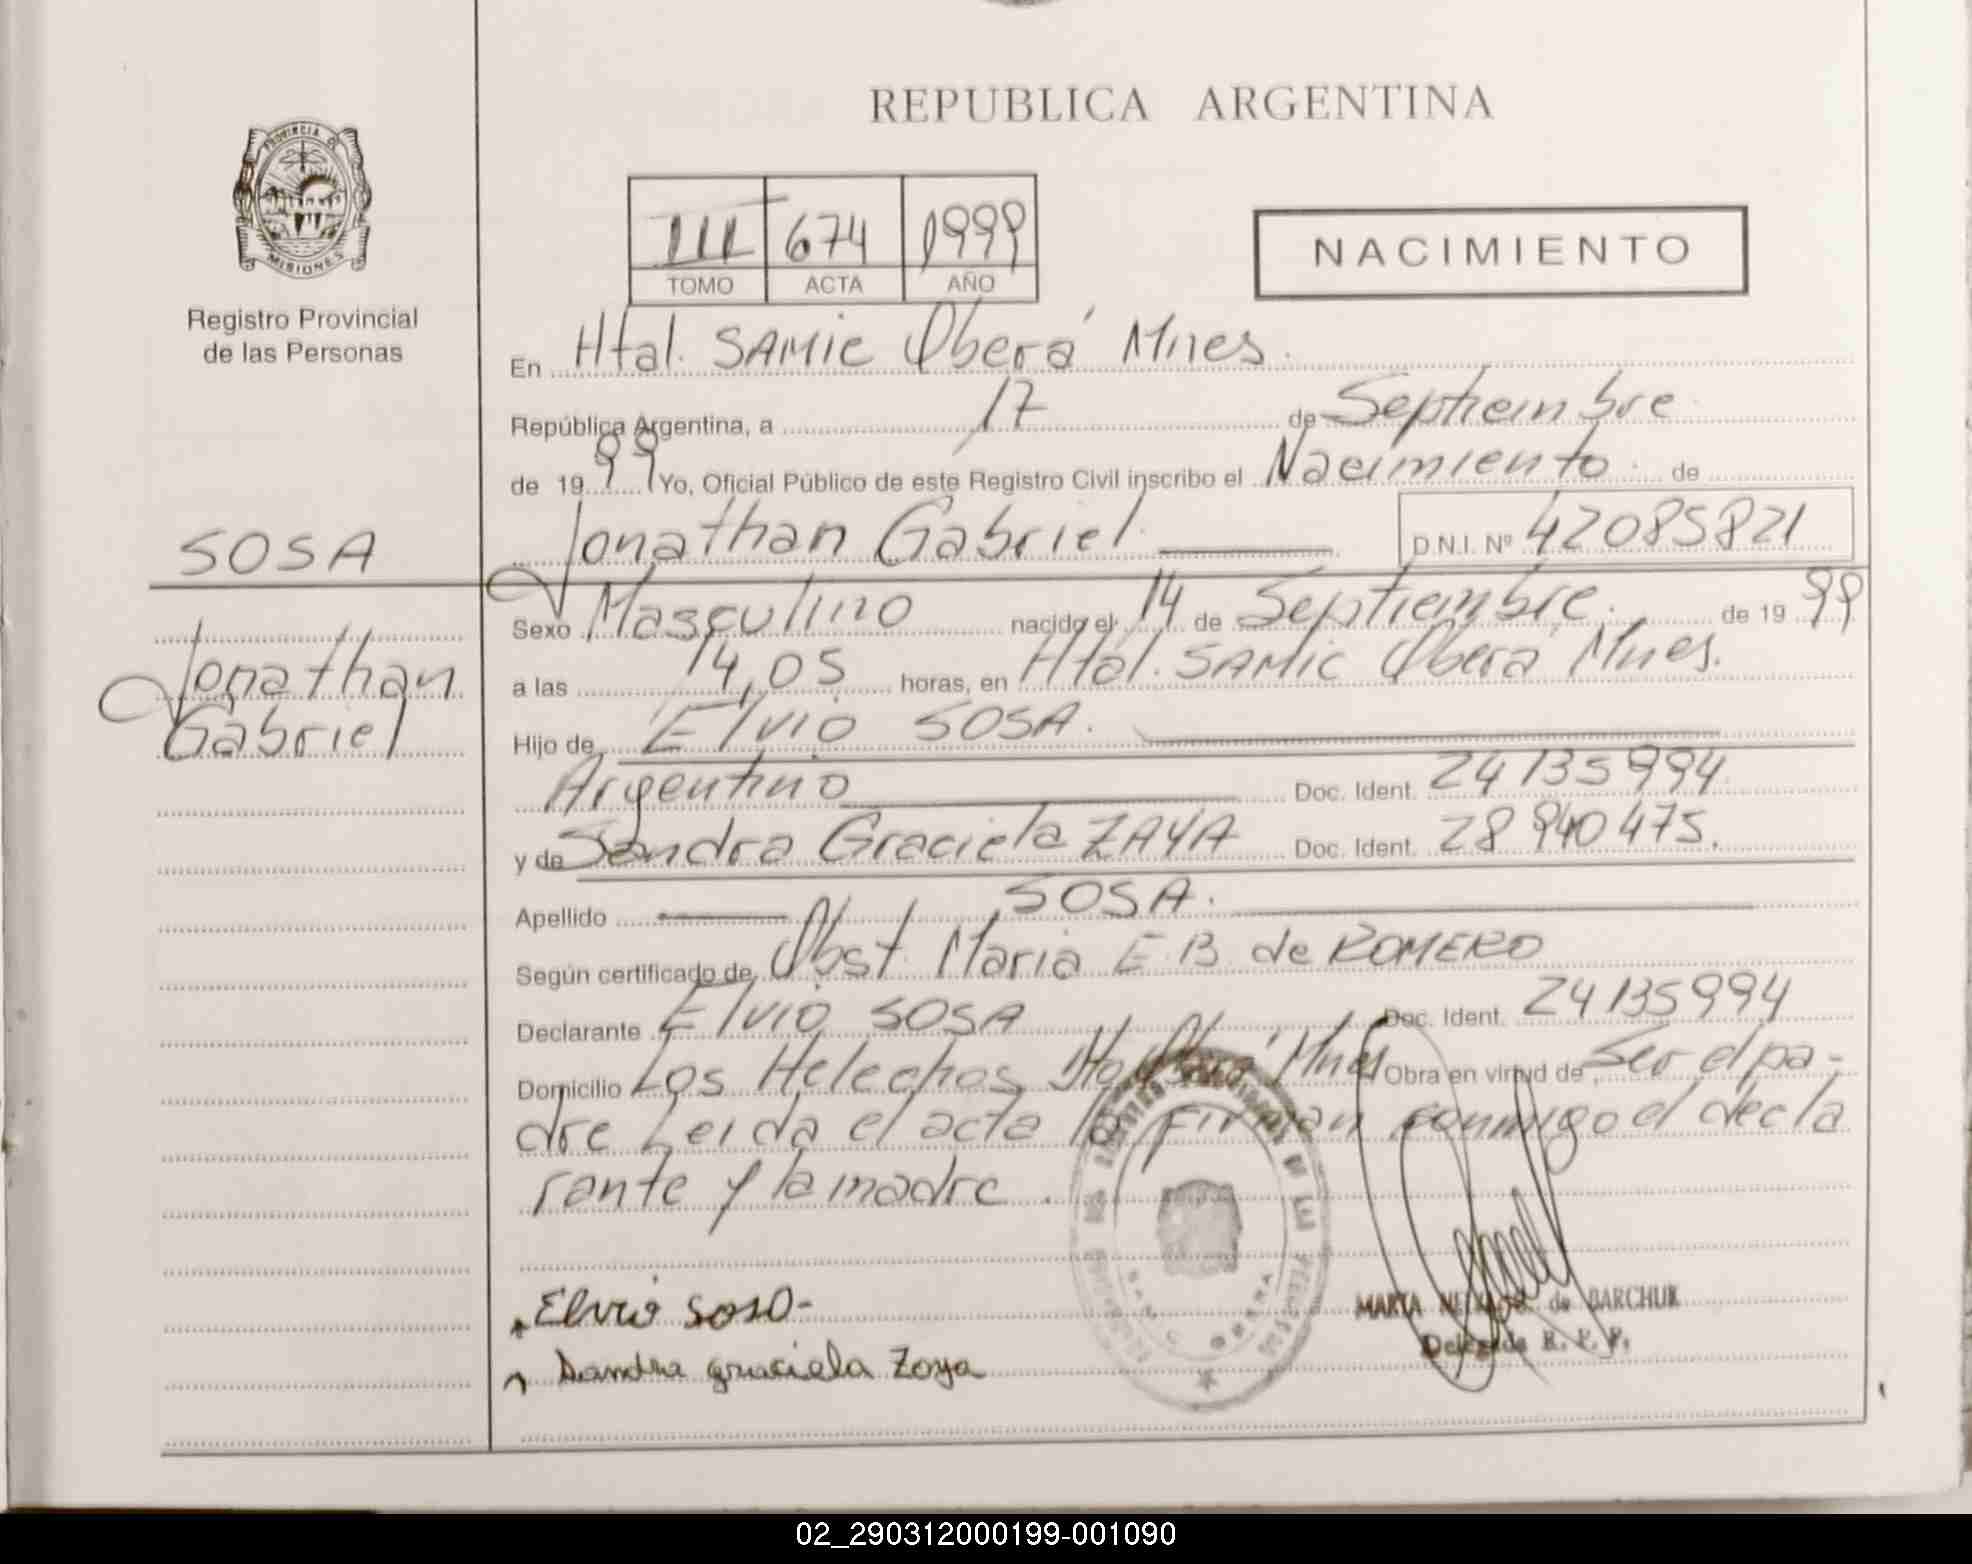 REPUBLICA ARGENTINA
PROVINCIA DE
MISIONES
Registro Provincial
de las Personas
III 674 1999
TOMO ACTA AÑO
NACIMIENTO
En Htal. SAMIC Oberá Mnes.
República Argentina, a 17 de Septiembre
de 1999 Yo, Oficial Público de este Registro Civil inscribo el Nacimiento de
Jonathan Gabriel D.N.I. Nº 42085821
SOSA
Jonathan
Gabriel
Sexo Masculino nacido el 14 de Septiembre. de 1999
a las 14,05 horas, en Htal. SAMIC Oberá Mnes.
Hijo de Elvio SOSA.
Argentino Doc. Ident. 24135994
y de Sandra Graciela ZAYA Doc. Ident. 28940475.
Apellido SOSA.
Según certificado de Obst. Maria E.B. de ROMERO
Declarante Elvio SOSA Doc. Ident. 24135994
Domicilio Los Helechos Oberá Mnes Obra en virtud de Ser el pa-
dre Leida el acta la firman conmigo el decla
rante y la madre.
Elvio SOSA-
Sandra graciela Zaya
MARTA de BARCHUK
Delegada R. P. P.
02_290312000199-001090